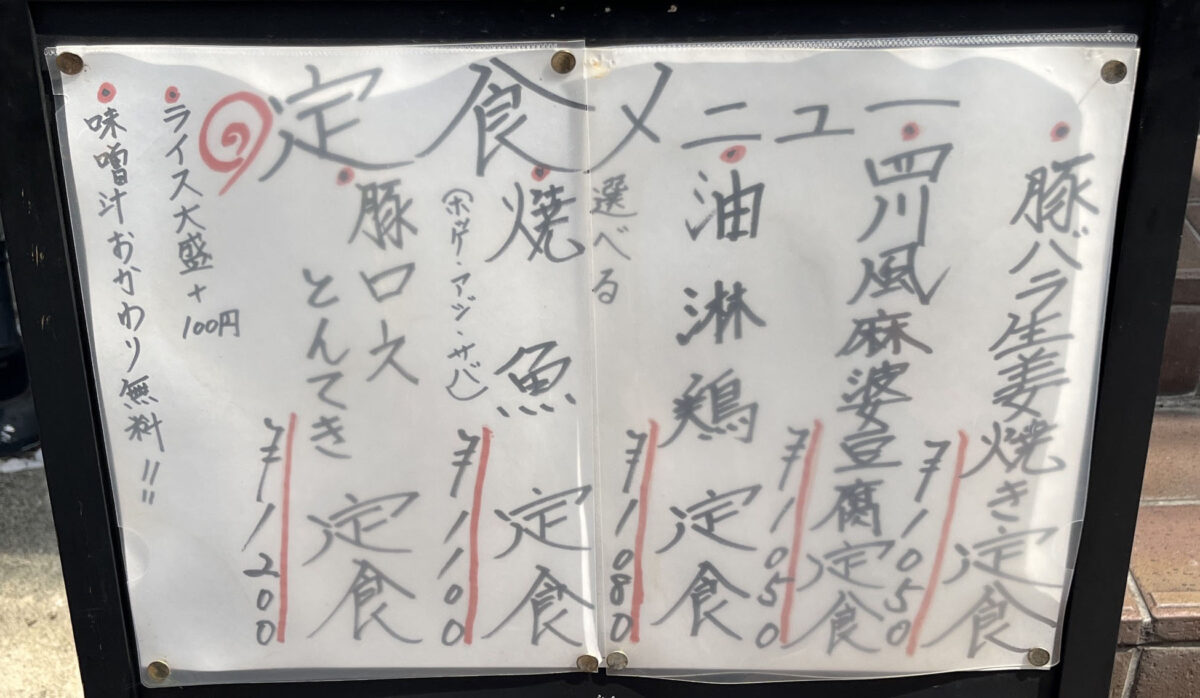 定食メニュー
豚バラ生姜焼き定食
¥1050
四川風麻婆豆腐定食
¥1050
油淋鶏 定食
¥1080
選べる
焼魚 定食
(ホッケ・アジ・サバ)
¥1100
豚ロース
とんてき 定食
¥1200
ライス大盛+100円
味噌汁おかわり無料!!